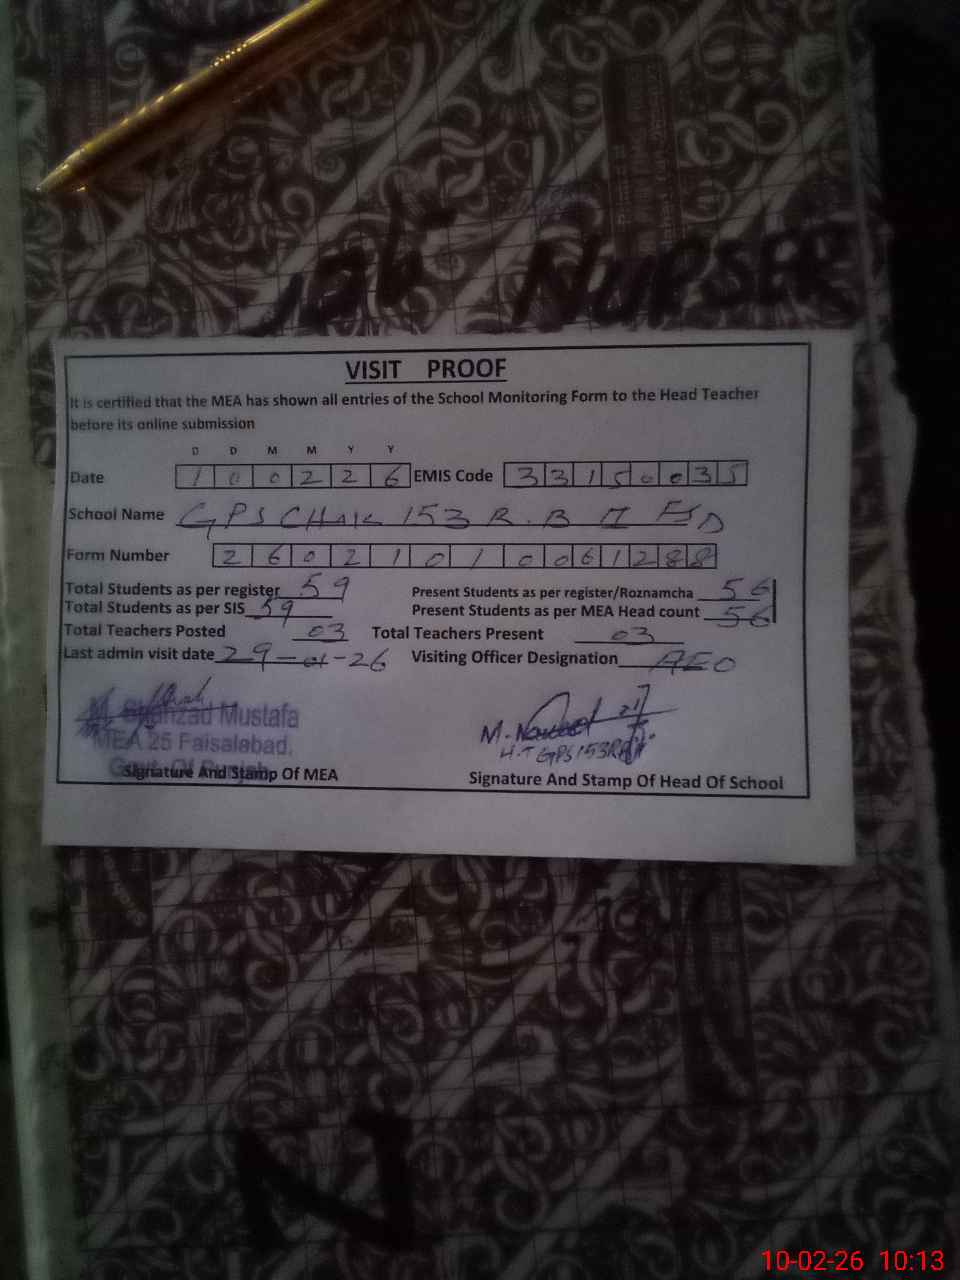 NURSER
VISIT PROOF
It is certified that the MEA has shown all entries of the School Monitoring Form to the Head Teacher
before its online submission
D D M M Y Y
Date 1 0 0 2 2 6 EMIS Code 3 3 1 5 0 0 3 5
School Name GPS CHAK 153 R.B II FSD
Form Number 2 6 0 2 1 0 1 0 0 6 1 2 8 8
Total Students as per register 59 Present Students as per register/Roznamcha 56
Total Students as per SIS 59 Present Students as per MEA Head count 56
Total Teachers Posted 03 Total Teachers Present 03
Last admin visit date 29-01-26 Visiting Officer Designation AEO
M Shahzad Mustafa
MEA 25 Faisalabad,
Govt. Of Punjab
M.
H.T GPS 153RB
Signature And Stamp Of MEA Signature And Stamp Of Head Of School
10-02-26 10:13